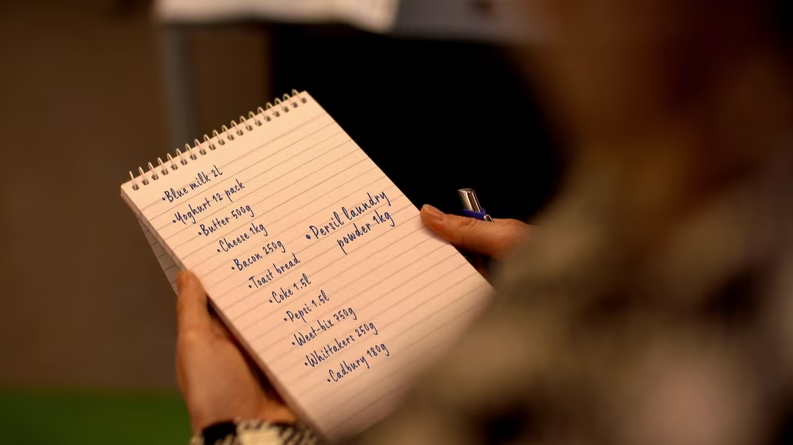 •Blue milk 2l
•Yoghurt 12 pack
•Butter 500g
•Cheese 1kg
•Bacon 250g
•Toast bread
•Coke 1.5l
•Pepsi 1.5l
•Weet-bix 750g
•Whittakers 250g
•Cadbury 180g
•Persil laundry
powder 1kg